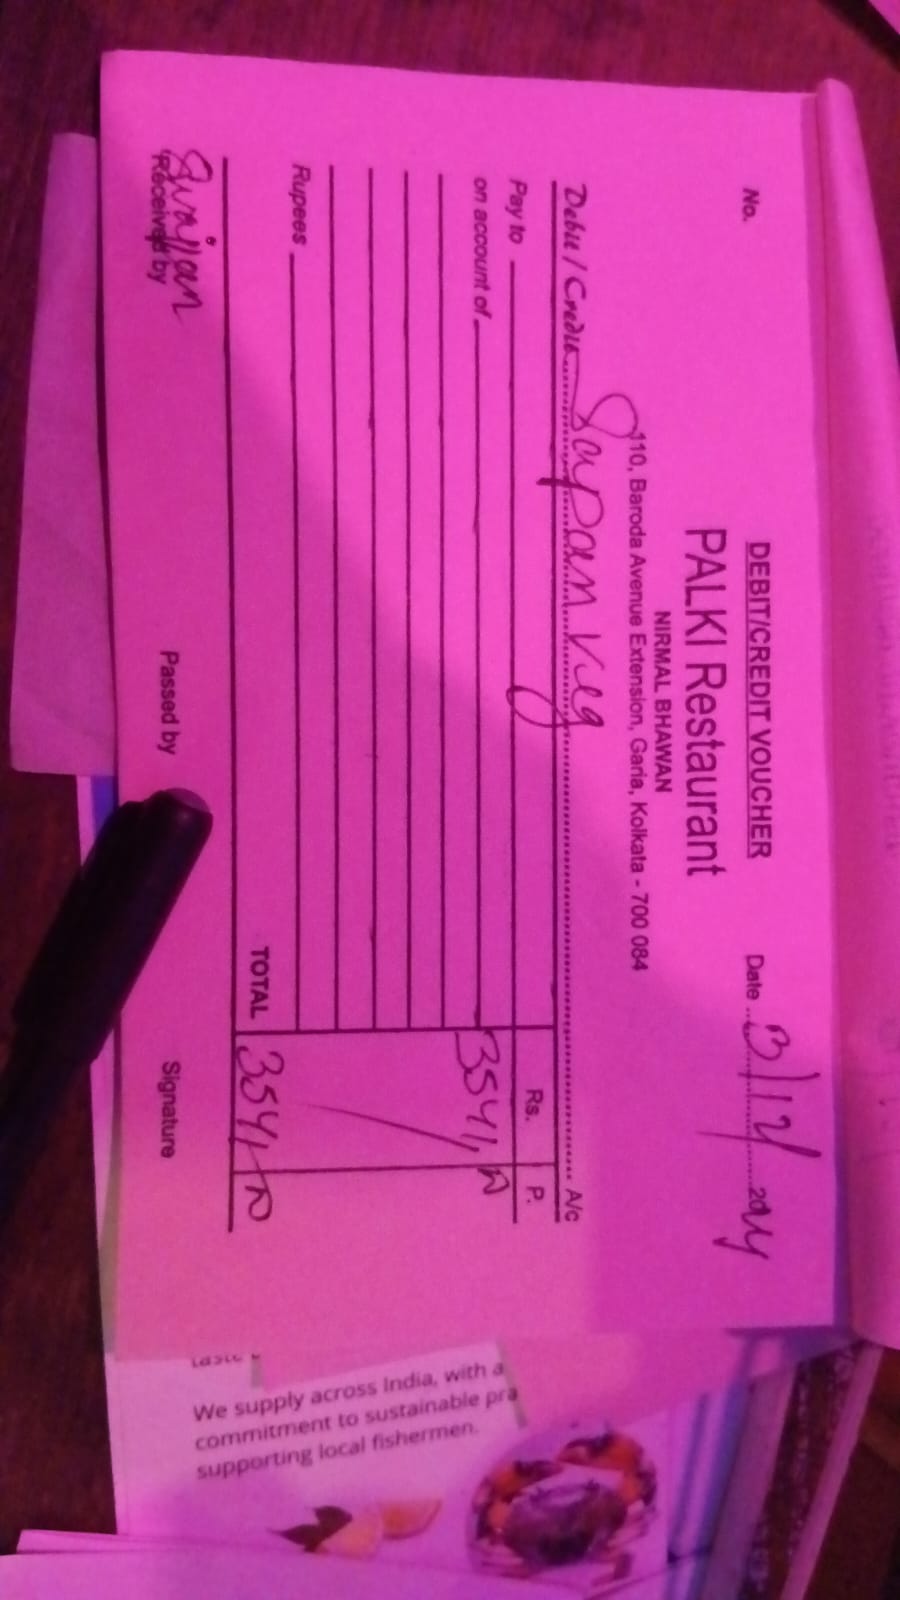 No.
DEBIT/CREDIT VOUCHER
Date ..3/12/.. 2024
PALKI Restaurant
NIRMAL BHAWAN
110, Baroda Avenue Extension, Garia, Kolkata - 700 084
Debit / Credit Sapan Veg A/c
Pay to Rs. P.
on account of 3541/-
Rupees
TOTAL 3541/-
Received by Passed by Signature
We supply across India, with a
commitment to sustainable pra
supporting local fishermen.